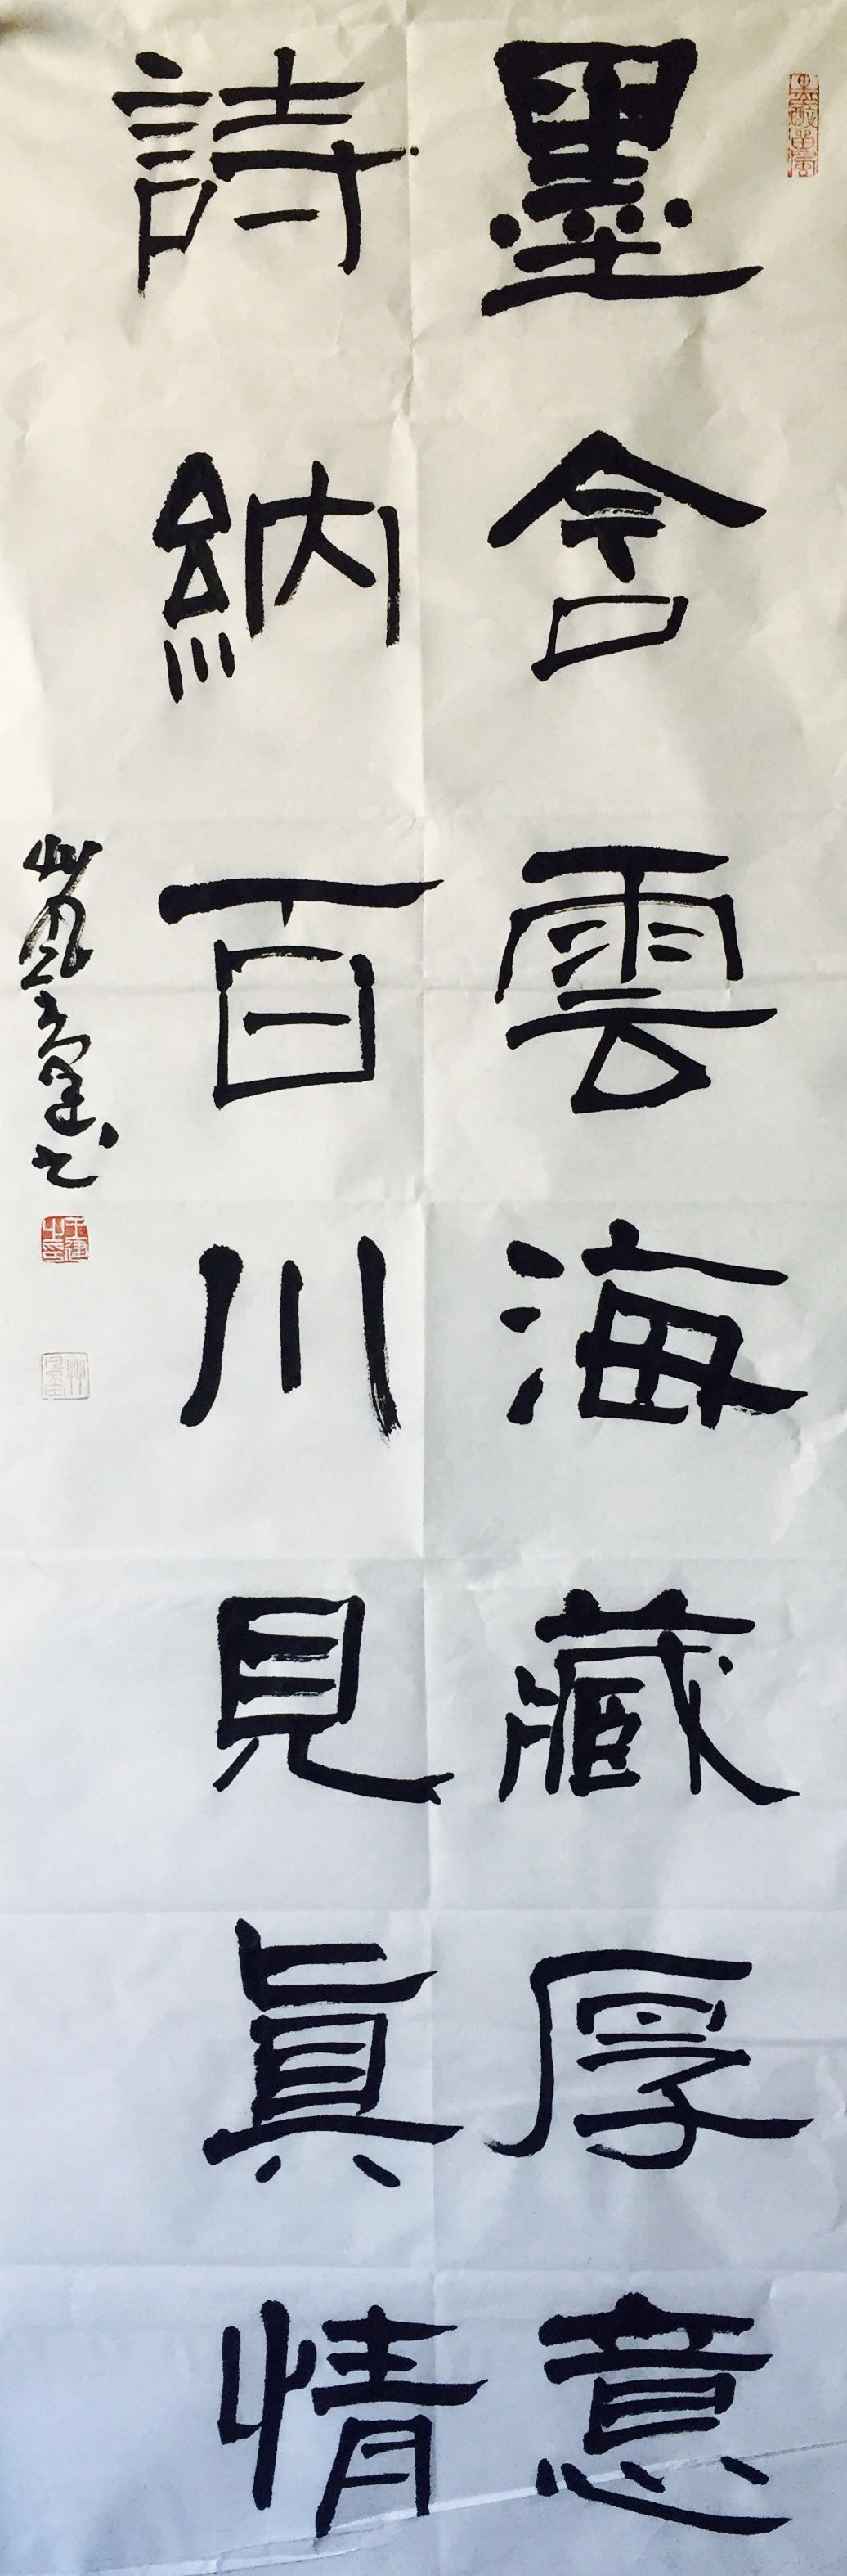 墨含雲海藏厚意
詩納百川見眞情